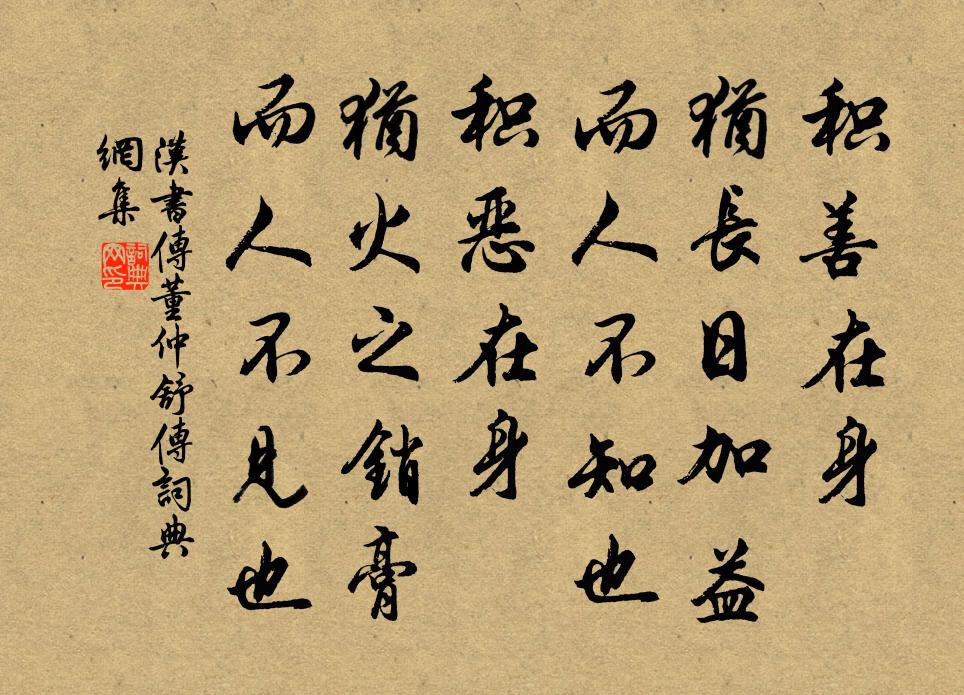 积善在身
猶長日加益
而人不知也
积恶在身
猶火之銷膏
而人不見也
漢書傳董仲舒傳詞典
網集
詞典
网印